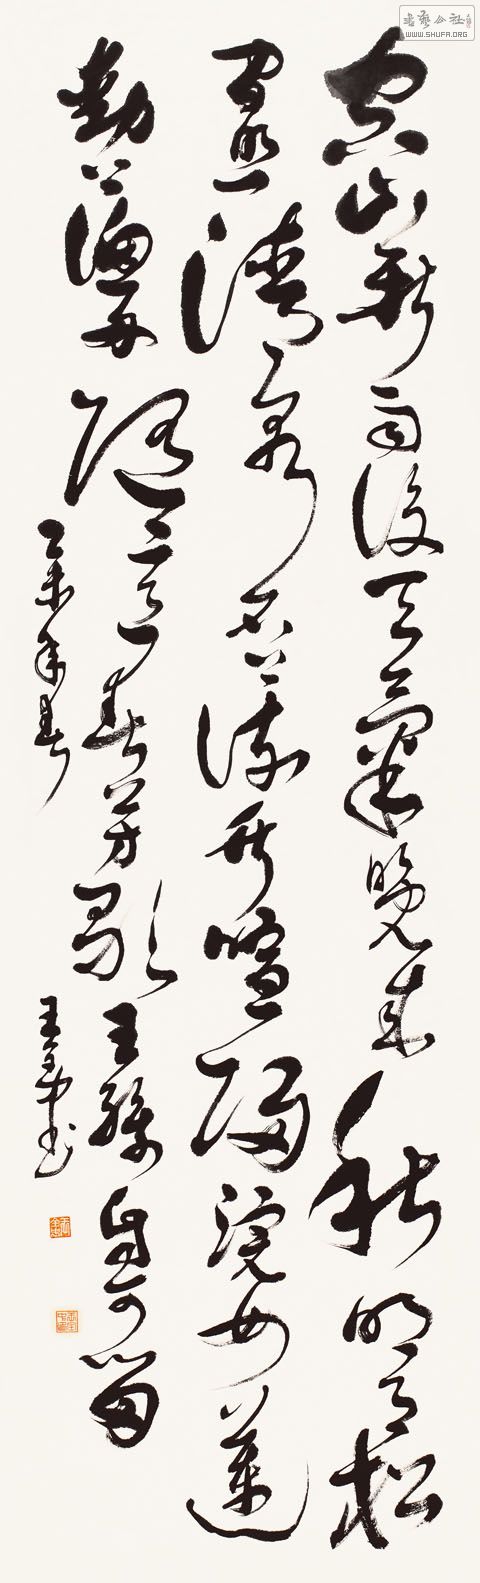 書藝公社
WWW.SHUFA.ORG
空山新雨後天氣晚来秋明月松
間照清泉石上流竹喧歸浣女蓮
動下漁舟隨意春芳歇王孫自可留
乙未年春
王 书